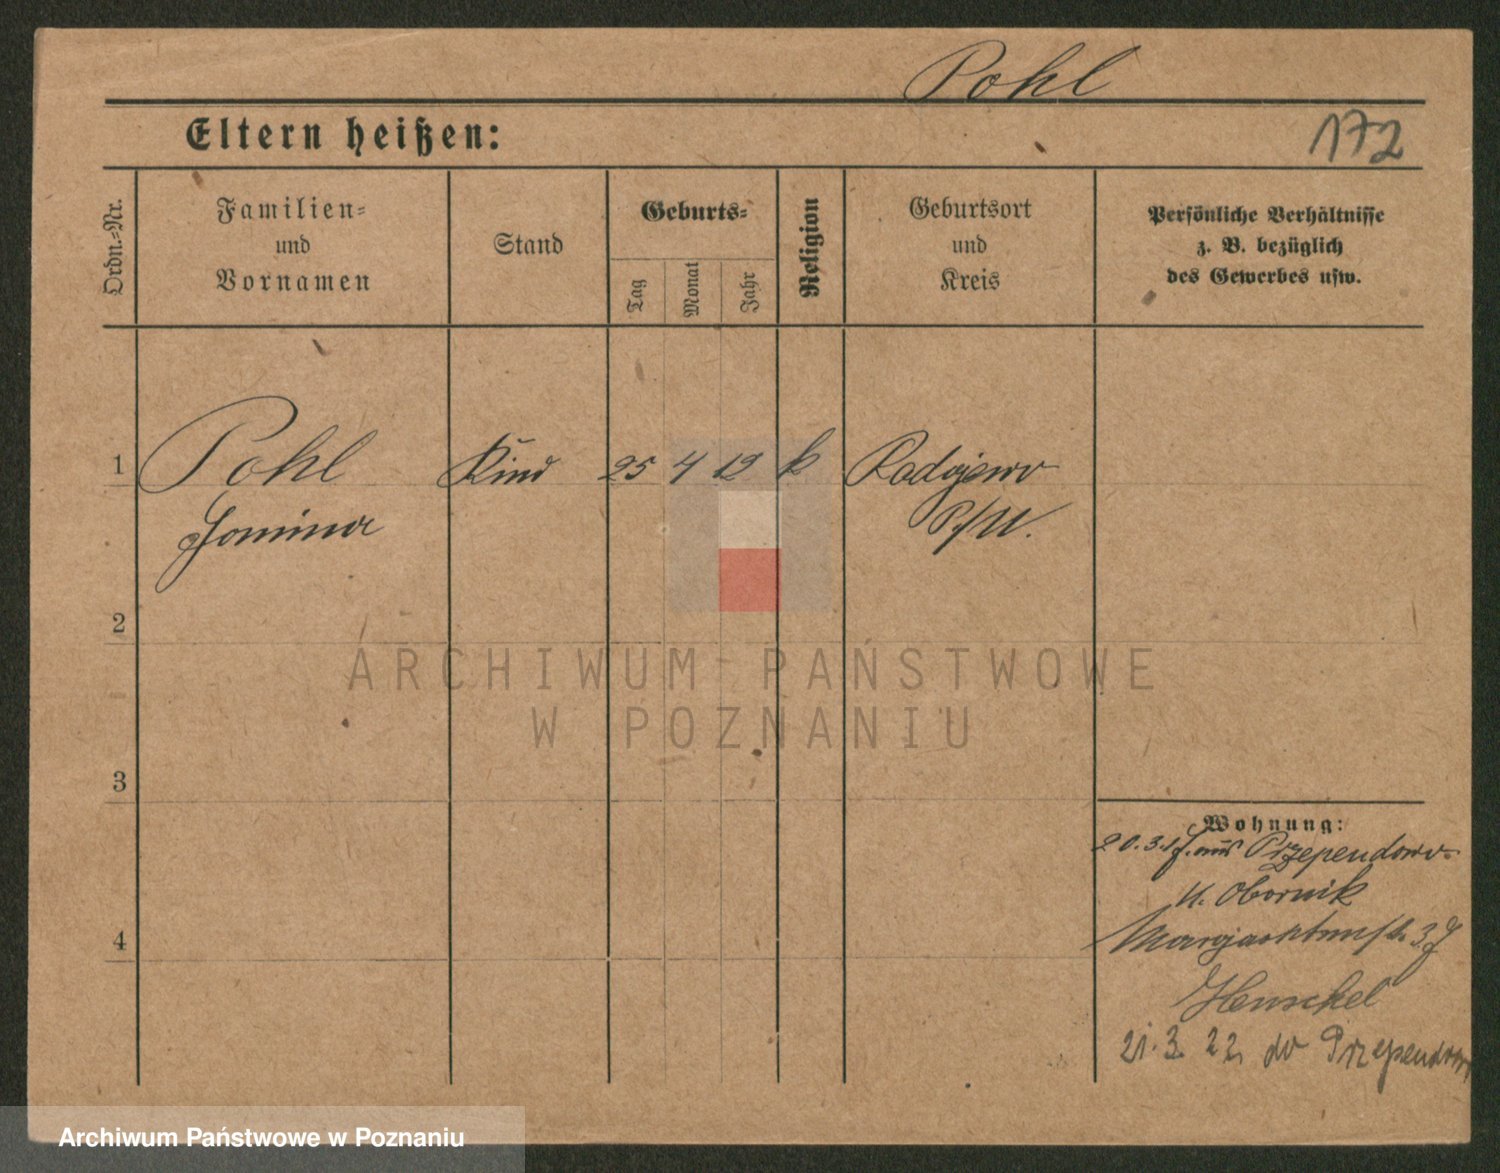 Pohl
Eltern heißen:
172
Ordn.-Nr.
Familien-
und
Vornamen
Stand
Geburts-
Tag
Monat
Jahr
Religion
Geburtsort
und
Kreis
Persönliche Verhältnisse
z. B. bezüglich
des Gewerbes usw.
1
Pohl
Kind
25 4 12
k
Radojewo
P/W.
Janina
2
ARCHIWUM PAŃSTWOWE
W POZNANIU
3
Wohnung:
20.3. aus Przependowo
K. Obornik
4
Henschel
21.3.22 do Przependowo
Archiwum Państwowe w Poznaniu